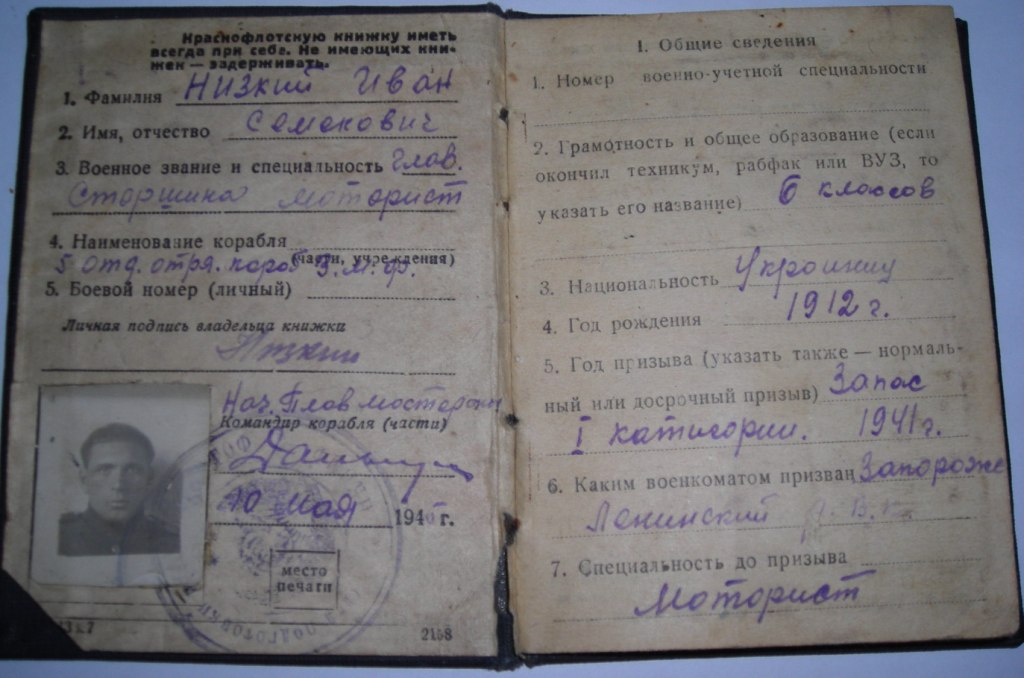 Краснофлотскую книжку иметь
всегда при себе. Не имеющих кни-
жек — задерживать.
1. Фамилия Низкий Иван
2. Имя, отчество Семенович
3. Военное звание и специальность Глав.
Старшина моторист
4. Наименование корабля
(части, учреждения)
5 отд. отря.
5. Боевой номер (личный)
Личная подпись владельца книжки
Низкий
Нач. Плав мастерской
Командир корабля (части)
10 мая 194 г.
место
печати
2158
1. Общие сведения
1. Номер военно-учетной специальности
2. Грамотность и общее образование (если
окончил техникум, рабфак или ВУЗ, то
указать его название) 6 классов
3. Национальность Украинец
4. Год рождения 1912 г.
5. Год призыва (указать также — нормаль-
ный или досрочный призыв) Запас
I катигории. 1941 г.
6. Каким военкоматом призван Запорож
Ленинский
7. Специальность до призыва
Моторист